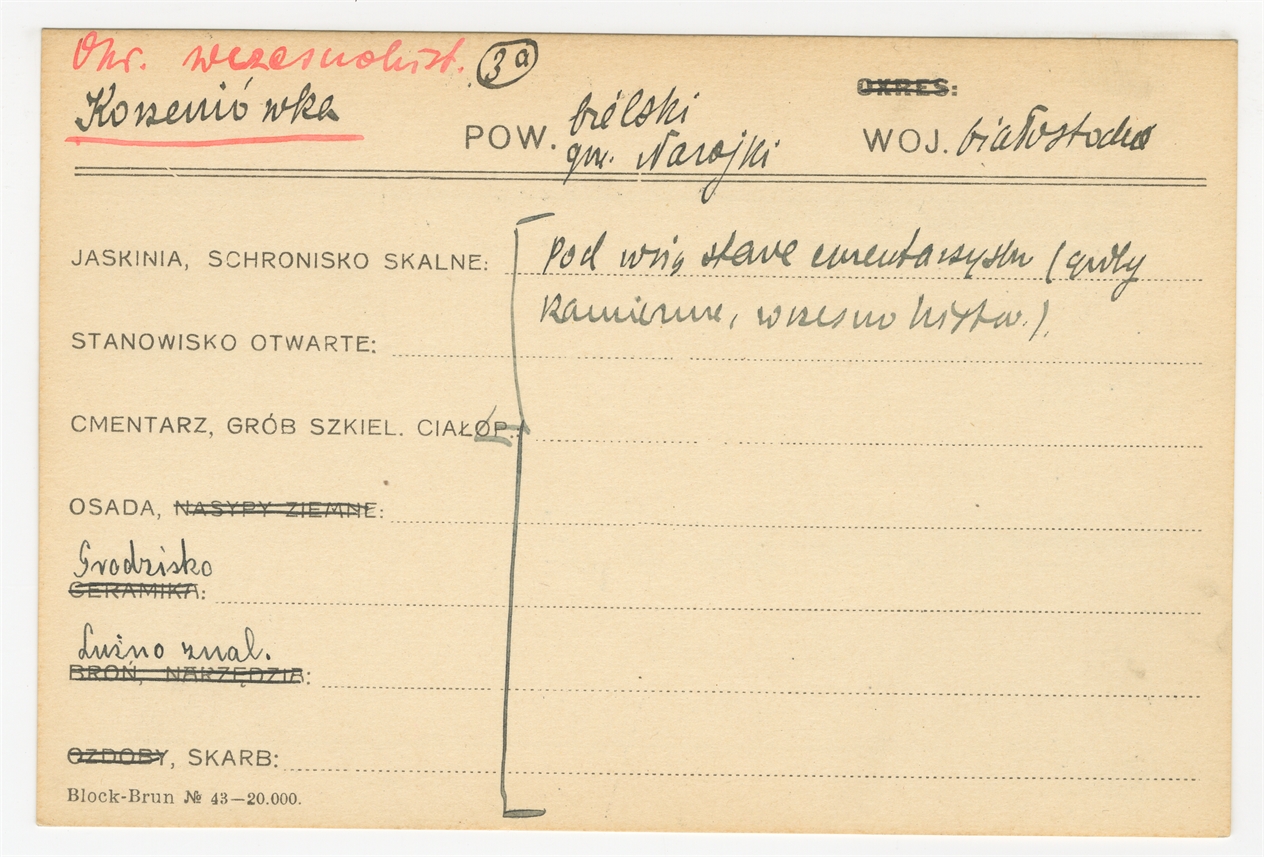 Okr. wczesnohist. 3a
Korzeniówka
OKRES:
POW. bielski
gm. Narojki
WOJ. białostockie
JASKINIA, SCHRONISKO SKALNE: Pod wsią stare cmentarzysko (groby
kamienne, wczesno histor.).
STANOWISKO OTWARTE:
CMENTARZ, GRÓB SZKIEL. CIAŁOP.:
OSADA, NASYPY ZIEMNE:
Grodzisko
CERAMIKA:
Luźno znal.
BROŃ, NARZĘDZIA:
OZDOBY, SKARB:
Block-Brun № 43—20.000.